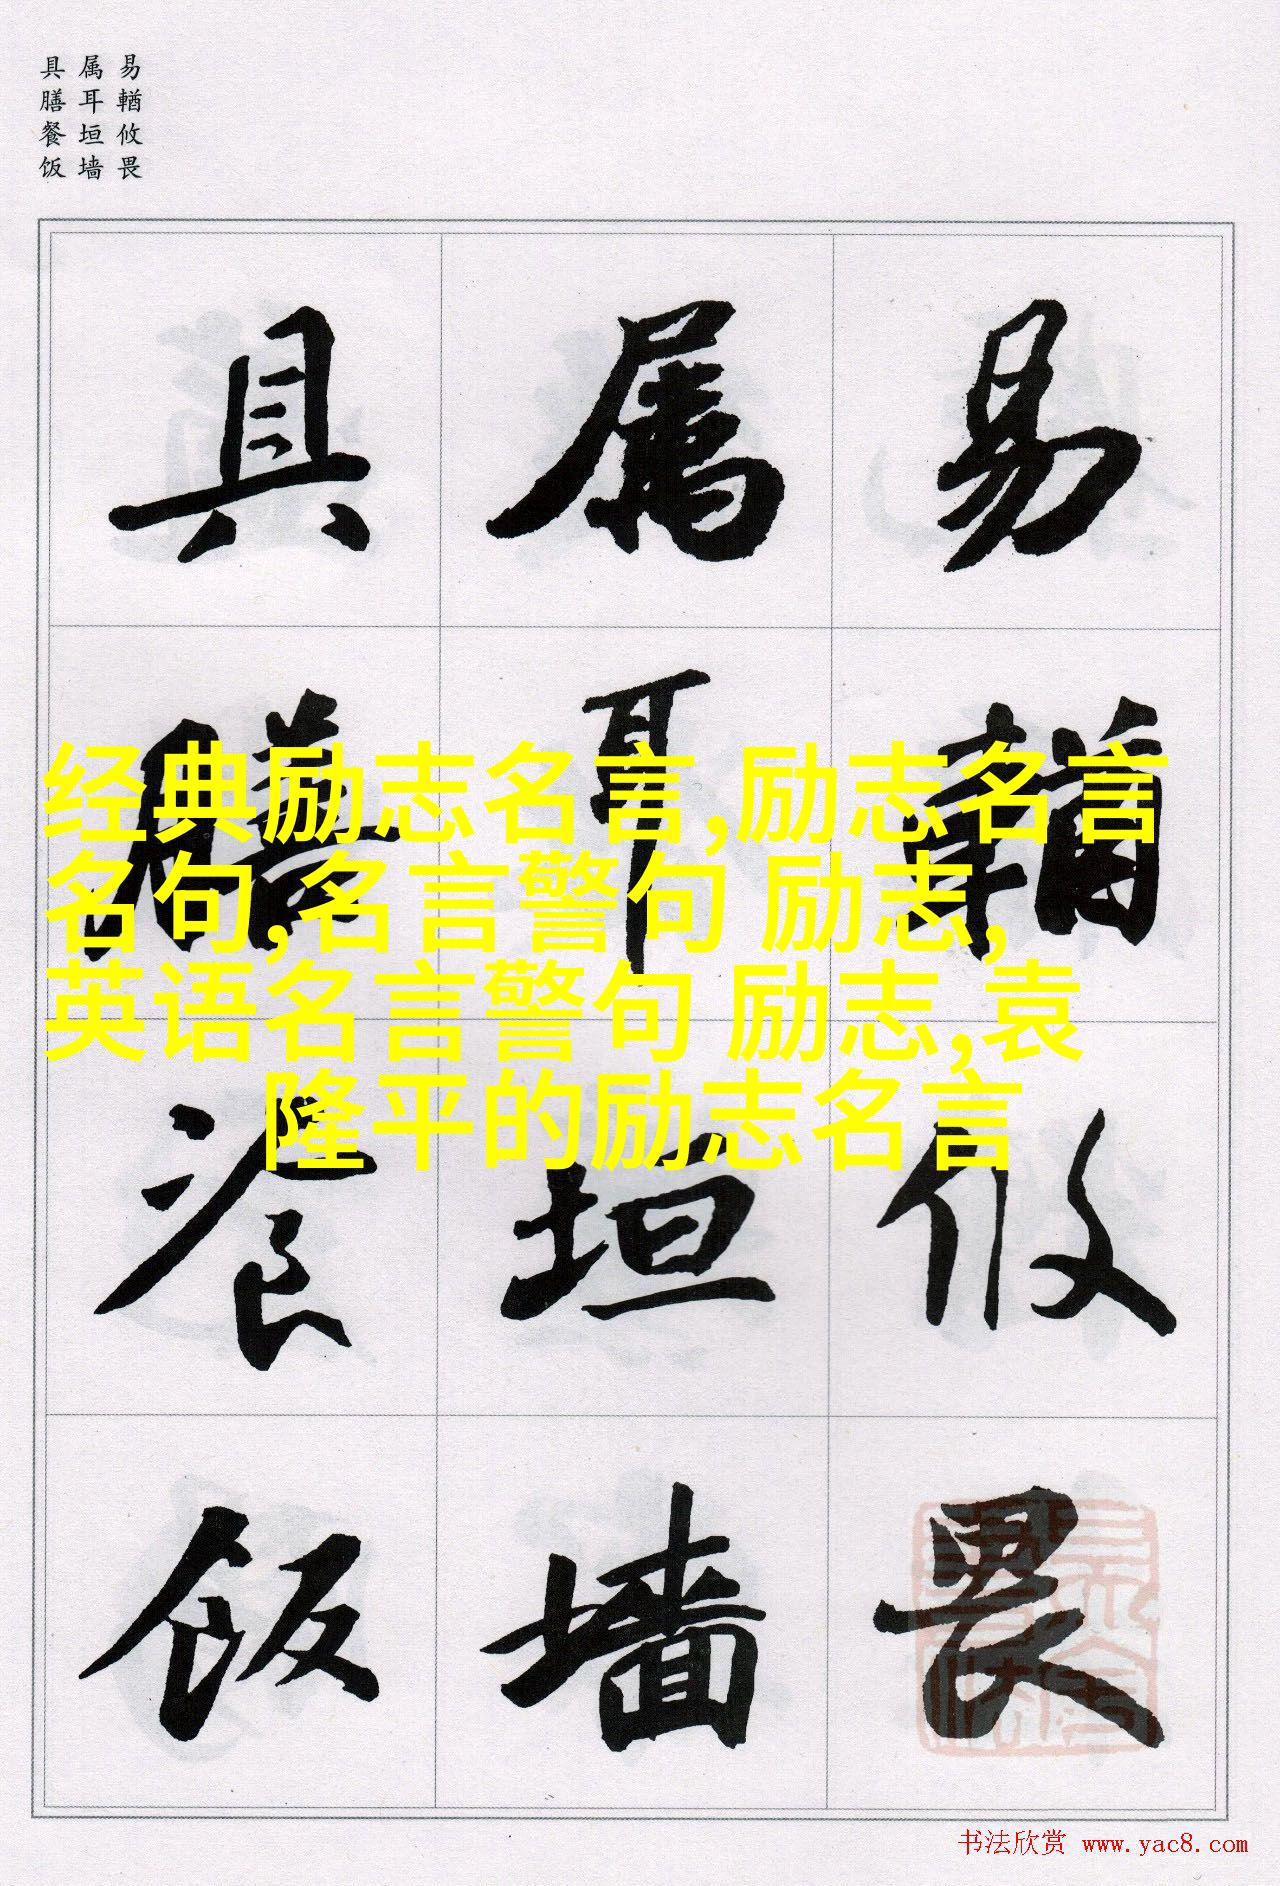 易輶攸畏
属耳垣墙
具膳餐饭
易輶攸畏
属耳垣墙
具膳飡饭
经典励志名言,励志名言
名句,名言警句 励志,
英语名言警句 励志,袁
隆平的励志名言
书法欣赏 www.yac8.com